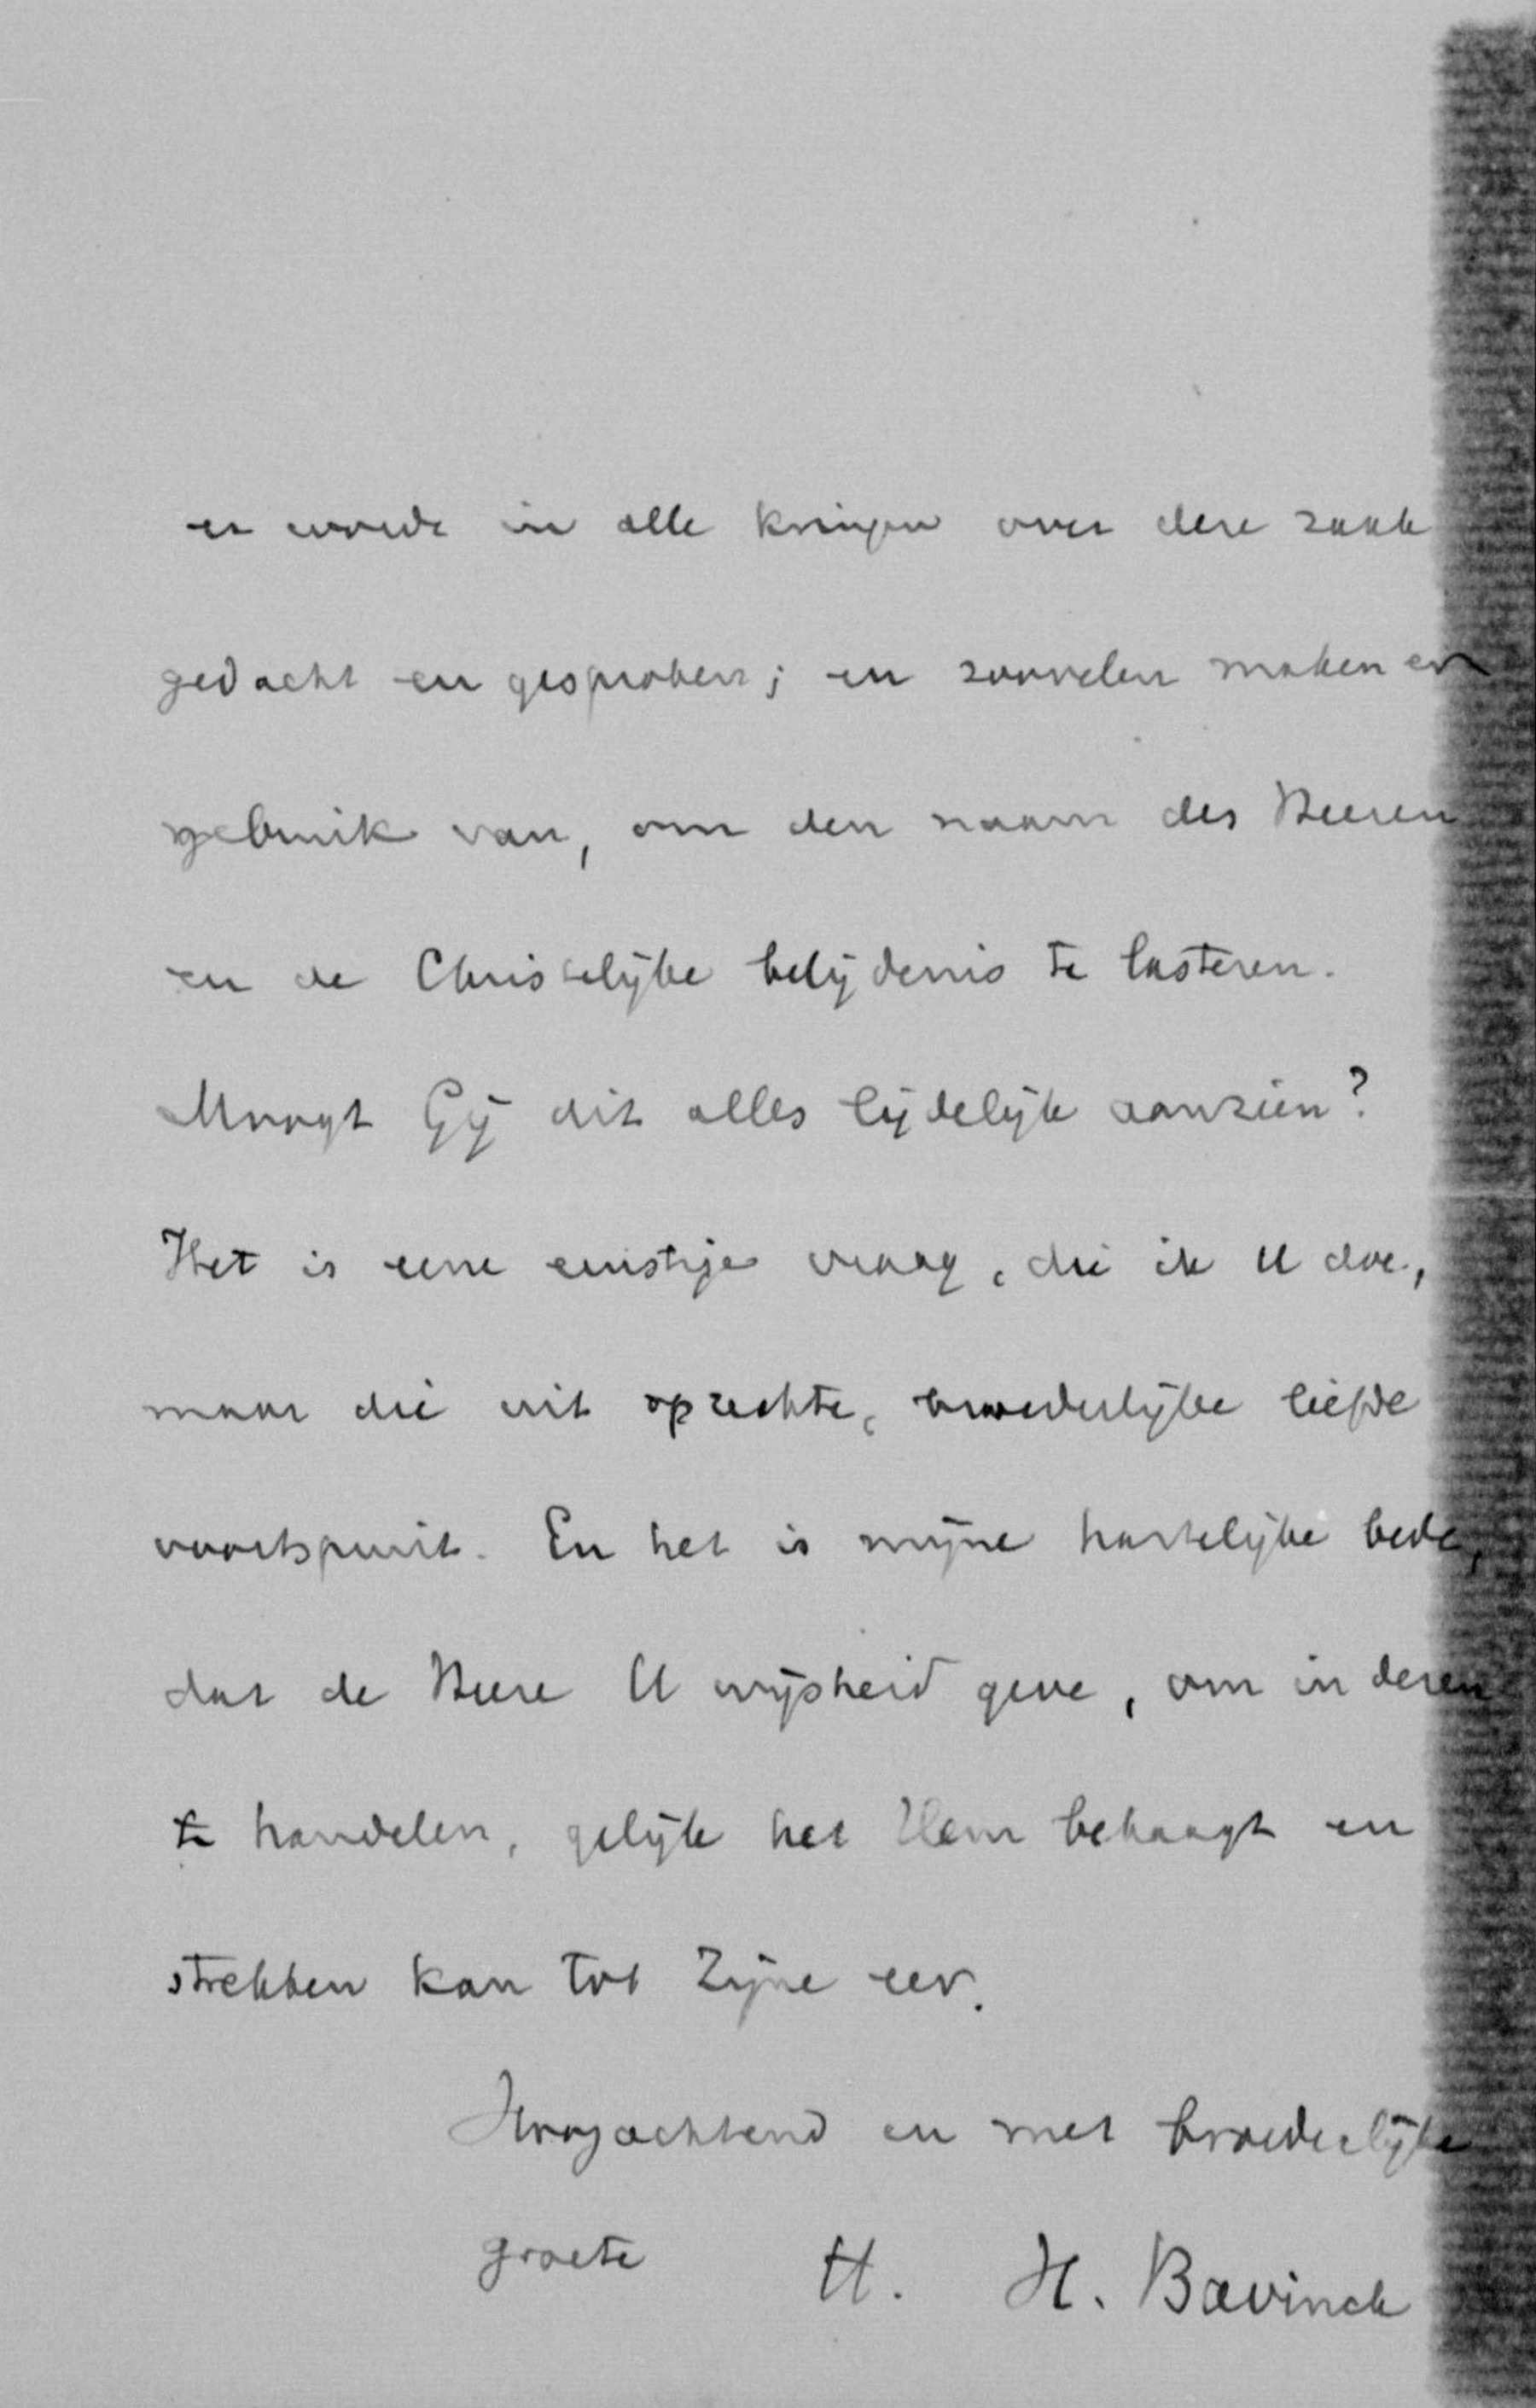 er wordt in alle kringen over deze zaak
gedacht en gesproken; en zoovelen maken er
gebruik van, om den naam des Heeren
en de Christelijke belijdenis te lasteren.
Moogt Gij dit alles lijdelijk aanzien?
Het is eene ernstige vraag, die ik U doe,
maar die uit oprechte, broederlijke liefde
voortspruit. En het is mijne hartelijke bede,
dat de Heere U wijsheid geve, om in dezen
te handelen, gelijk het Hem behaagt en
strekken kan tot Zijne eer.
Hoogachtend en met broederlijke
groete t.t. H. Bavinck